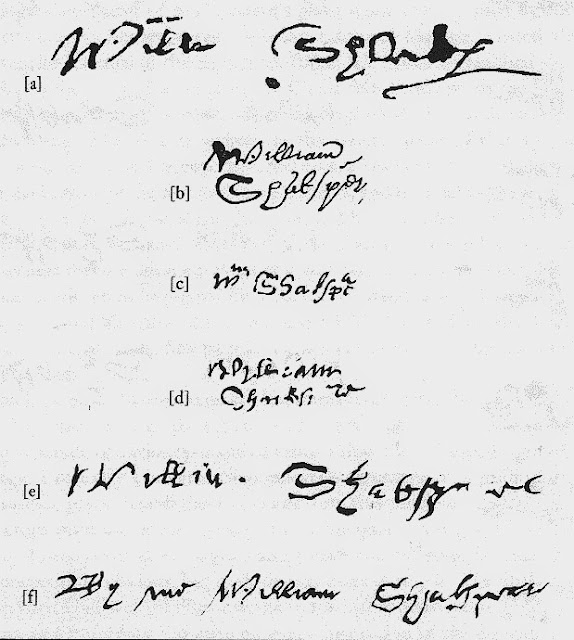 [a] Willm Shakp
[b] William
Shaksper
[c] Wm Shakspe
[d] William
[e] Willm Shakspere
[f] By me William Shakspeare